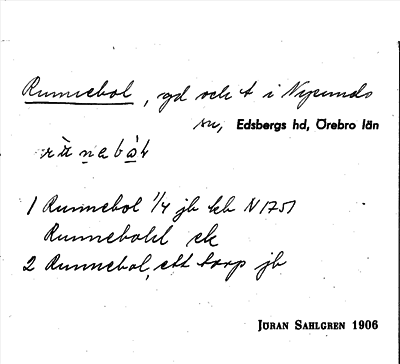 Runnebol, gd och t i Nysunds
sn, Edsbergs hd, Örebro län
1 Runnebol 1/4 jb kb N 1751
Runnebohl ek
2 Runnebol, ett torp jb
JÖRAN SAHLGREN 1906